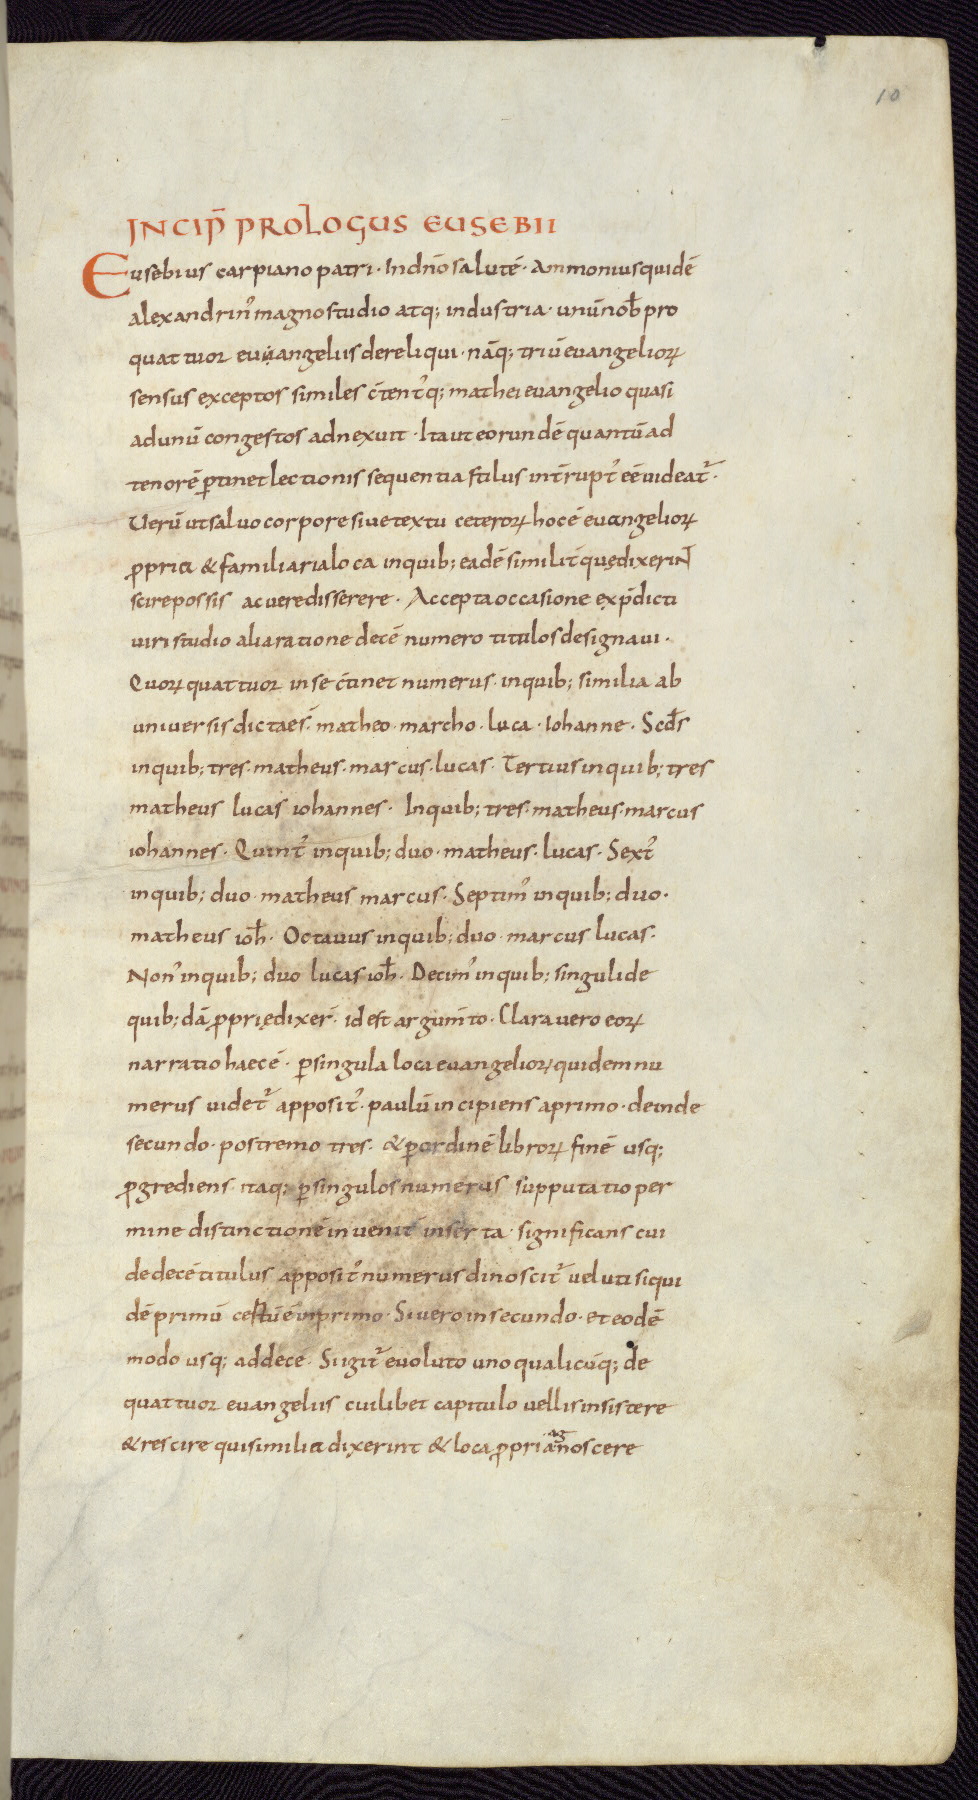 10
INCIP̄ PROLOGUS EUSEBII
Eusebius carpiano patri · In dn̄o salutē · Ammonius quidē
alexandrin᾽ magno studio atq; industria · unū nob̄ pro
quattuor euuangeliis dereliqui · nāq; triū euangelioꝝ
sensus exceptos similes c̄tent᾽q; mathei euangelio quasi
ad unū congestos adnexuit · Ita ut eorundē quantū ad
tenorē ꝑtinet lectionis sequentia stilus int̄rupt᾽ eē uideat᾽ ·
Uerū ut saluo corpore siue textu ceteroꝝ hoc ē euangelioꝝ
ꝓpria & familiaria loca in quib; eadē similit̄ quę dixerinт̄
scire possis ac uere disserere · Accepta occasione ex p̄dicti
uiri studio alia ratione decē numero titulos designaui ·
Quoꝝ quattuor in se c̄tinet numerus · in quib; similia ab
uniuersis dicta es̄ · matheo · marcho · luca · Iohanne · Scd̄s
in quib; tres · matheus · marcus · lucas · Tertius in quib; tres
matheus lucas iohannes · In quib; tres · matheus · marcus
iohannes · Quint᾽ in quib; duo · matheus · lucas · Sext᾽
in quib; duo · matheus marcus · Septim᾽ in quib; duo ·
matheus ioh̄ · Octauus in quib; duo · marcus lucas ·
Non᾽ in quib; duo lucas ioh̄ · Decim᾽ in quib; singuli de
quib; dā ꝓprię dixer̄ · id est argum̄to · Clara uero eoꝝ
narratio haec ē · ꝑ singula loca euangelioꝝ quidem nu
merus uidet᾽ apposit᾽ · paulū incipiens a primo · deinde
secundo · postremo tres · & ꝑ ordinē libroꝝ finē usq;
ꝓgrediens · itaq; ꝑ singulos numerus supputatio per
mine distinctionē inuenit̄ inserta · significans cui
de decē titulus apposit᾽ numerus dinoscit᾽ uel uti si qui
dē primū certū ē in primo · Si uero in secundo · et eodē
modo usq; ad decē · Si igit᾽ euoluto uno qualicūq; de
quattuor euangeliis cuilibet capitulo uellis insistere
& rescire qui similia dixerint & loca ꝓpria agnoscere